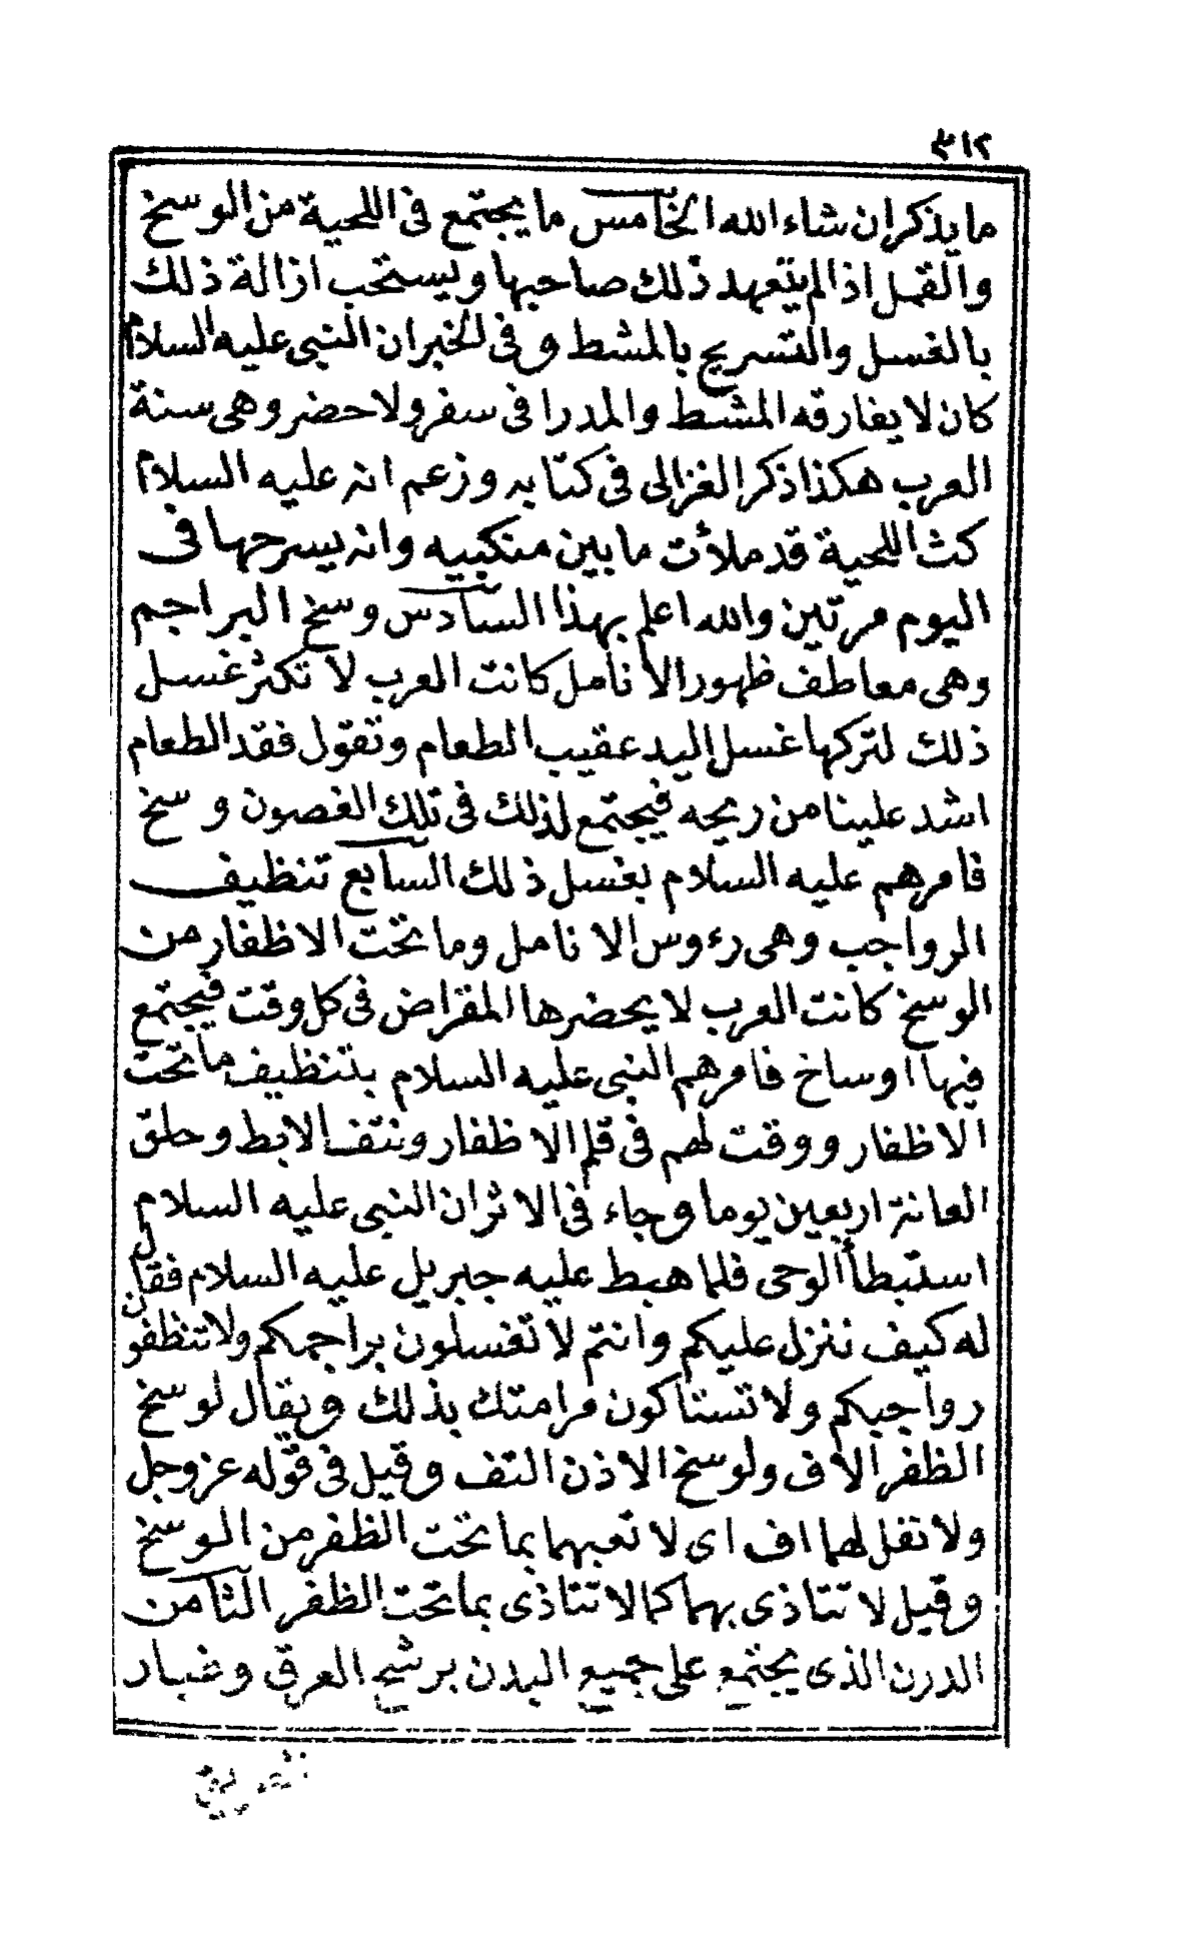 ٣١٢
ما يذكر إن شاء الله الخامس ما يجتمع فى اللحية من الوسخ
والقمل اذا لم يتعهد ذلك صاحبها ويستحب ازالة ذلك
بالغسل والتسريح بالمشط وفى الخبر ان النبى عليه السلام
كان لا يفارقه المشط والمدرا فى سفر ولا حضر وهى سنة
العرب هكذا ذكر الغزالى فى كتابه وزعم انه عليه السلام
كث اللحية قد ملأت ما بين منكبيه وانه يسرحها فى
اليوم مرتين والله اعلم بهذا السادس وسخ البراجم
وهى معاطف ظهور الأنامل كانت العرب لا تكثر غسل
ذلك لتركها غسل اليد عقيب الطعام وتقول فقد الطعام
اشد علينا من ريحه فيجتمع لذلك فى تلك الغصون وسخ
فامرهم عليه السلام بغسل ذلك السابع تنظيف
الرواجب وهى رءوس الانامل وما تحت الاظفار من
الوسخ كانت العرب لا يحضرها المقراض فى كل وقت فيجتمع
فيها اوساخ فامرهم النبى عليه السلام بتنظيف ما تحت
الاظفار ووقت لهم فى قلم الاظفار ونتف الابط وحلق
العانة اربعين يوما وجاء فى الاثر ان النبى عليه السلام
استبطأ الوحى فلما هبط عليه جبريل عليه السلام فقال
له كيف ننزل عليكم وانتم لا تغسلون براجمكم ولا تنظفون
رواجبكم ولا تستاكون مر امتك بذلك ويقال لوسخ
الظفر الاف ولوسخ الاذن التف وقيل فى قوله عز وجل
ولا تقل لهما اف اى لا تعبهما بما تحت الظفر من الوسخ
وقيل لا تتاذى بهما كما لا تتاذى بما تحت الظفر الثامن
الدرن الذى يجتمع على جميع البدن برشح العرق وغبار